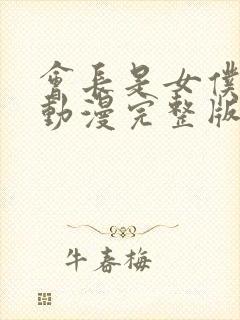 會長是女僕
動漫完整版
牛春梅